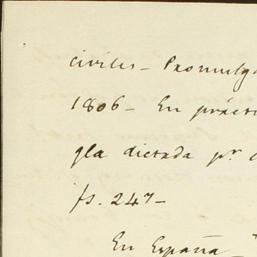 civiles - Promulga
1806 - En prácti
gla dictada pr.
fs. 247 -
En España -